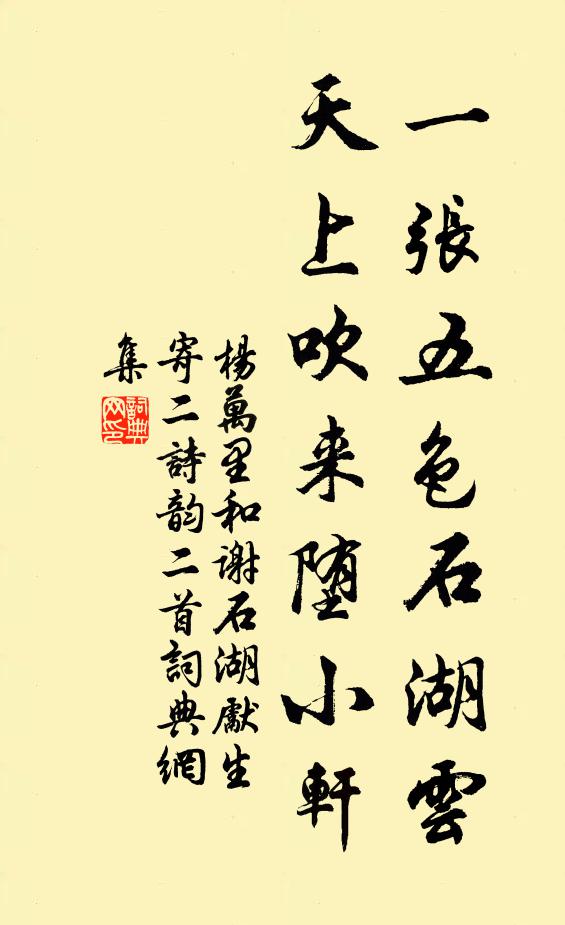 一張五色石湖雲
天上吹来堕小軒
楊萬里和谢石湖獻生
寄二詩韵二首詞典網
集
詞典網印